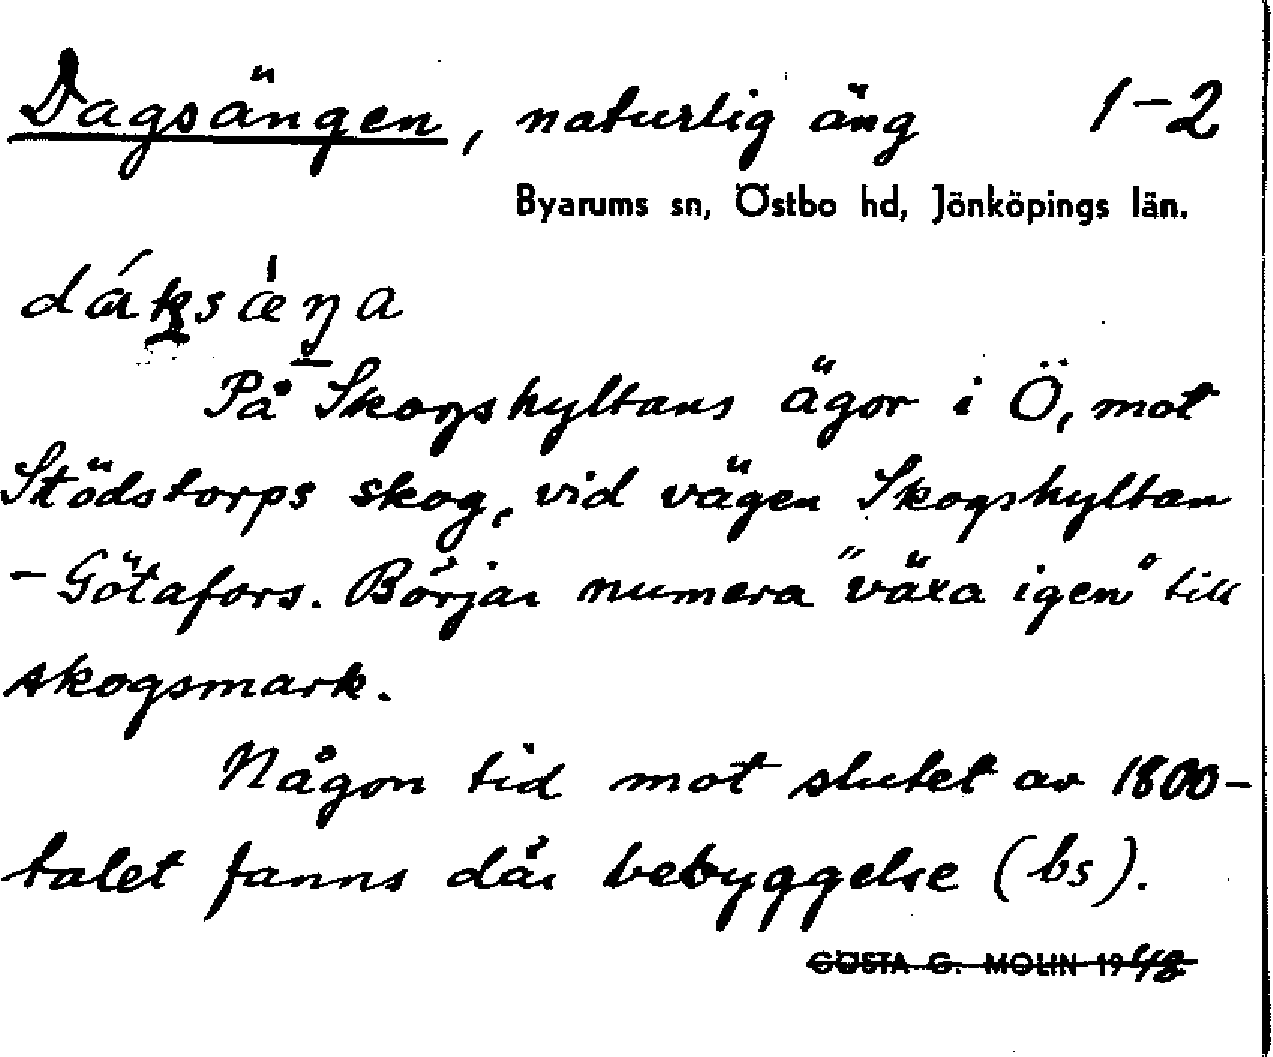 Dagsängen, naturlig äng 1-2
Byarums sn, Östbo hd, Jönköpings län.
dáksæ̀ŋa
På Skogshyltans ägor i Ö, mot
Stödstorps skog, vid vägen Skogshyltan
- Götafors. Börjar numera "växa igen" till
skogsmark.
Någon tid mot slutet av 1800-
talet fanns där bebyggelse (bs).
GÖSTA G. MOLIN 1948